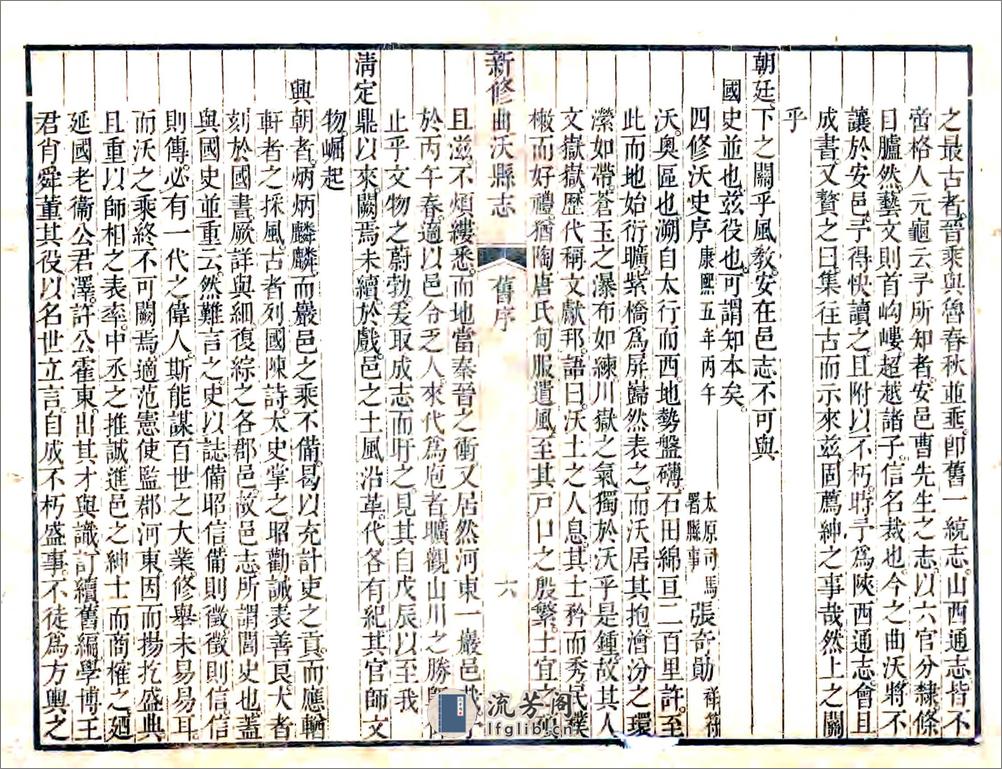 之最古者晉乘與魯春秋並垂卽舊一統志山西通志皆不
啻格人元龜云予所知者安邑曹先生之志以六官分隸條
目臚然藝文則首岣嶁超越諸子信名裁也今之曲沃將不
讓於安邑予得快讀之且附以不朽時予爲陝西通志會且
成書又贅之曰集往古而示來茲固薦紳之事哉然上之關
乎
朝廷下之關乎風敎安在邑志不可與
國史並也茲役也可謂知本矣
四修沃史序 康熙五年丙午 太原司馬署縣事 張奇勛 祥符
沃奧區也溯自太行而西地勢盤礴石田綿亘二百里許至
此而地始衍曠紫橋爲屏歸然表之而沃居其抱澮汾之環
瀠如帶蒼玉之瀑布如練川嶽之氣獨於沃乎是鍾故其人
文嶽嶽歷代稱文獻邦語曰沃土之人息其士矜而秀民樸
橄而好禮猶陶唐氏甸服遺風至其戸口之殷繁土宜之
且滋不煩縷悉而地當秦晉之衝又居然河東一巖邑
於丙午春適以邑令乏人來代爲庖者曠觀山川之勝
止乎文物之蔚勃爰取成志而盱之見其自戊辰以至我
淸定鼎以來闕焉未續於戲邑之土風沿革代各有紀其官師文
物崛起
興朝者炳炳麟麟而巖邑之乘不備曷以充計吏之貢而應輶
軒者之採風古者列國陳詩太史掌之昭勸誡表善良大者
刻於國書厥詳與細復綜之各郡邑故邑志所謂閭史也蓋
與國史並重云然難言之史以誌備昭信備則徵徵則信信
則傳必有一代之偉人斯能謀百世之大業修舉未易易耳
而沃之乘終不可闕焉適范憲使監郡河東因而揚扢盛典
且重以師相之表率中丞之推誠進邑之紳士而商榷之廼
延國老衞公君澤許公霍東出其才與識訂續舊編學博王
君肖舜董其役以名世立言自成不朽盛事不徒爲方輿之
新修曲沃縣志
舊序
六
流芳阁
lfglib.cn